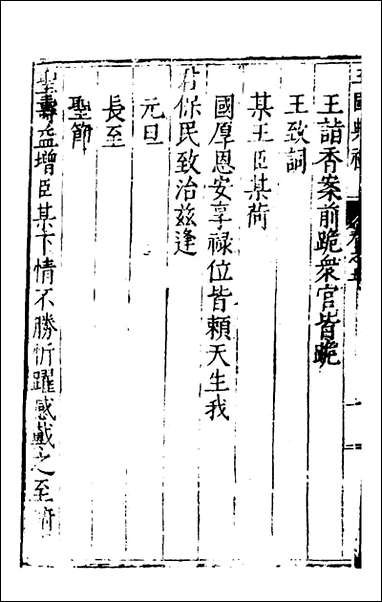 王國典禮
王詣香案前跪衆官皆跪
王致詞
某王臣某荷
國厚恩安享禄位皆賴天生我
君保民致治兹逢
元旦
長至
聖節
聖壽益增臣某下情不勝忻躍感戴之至